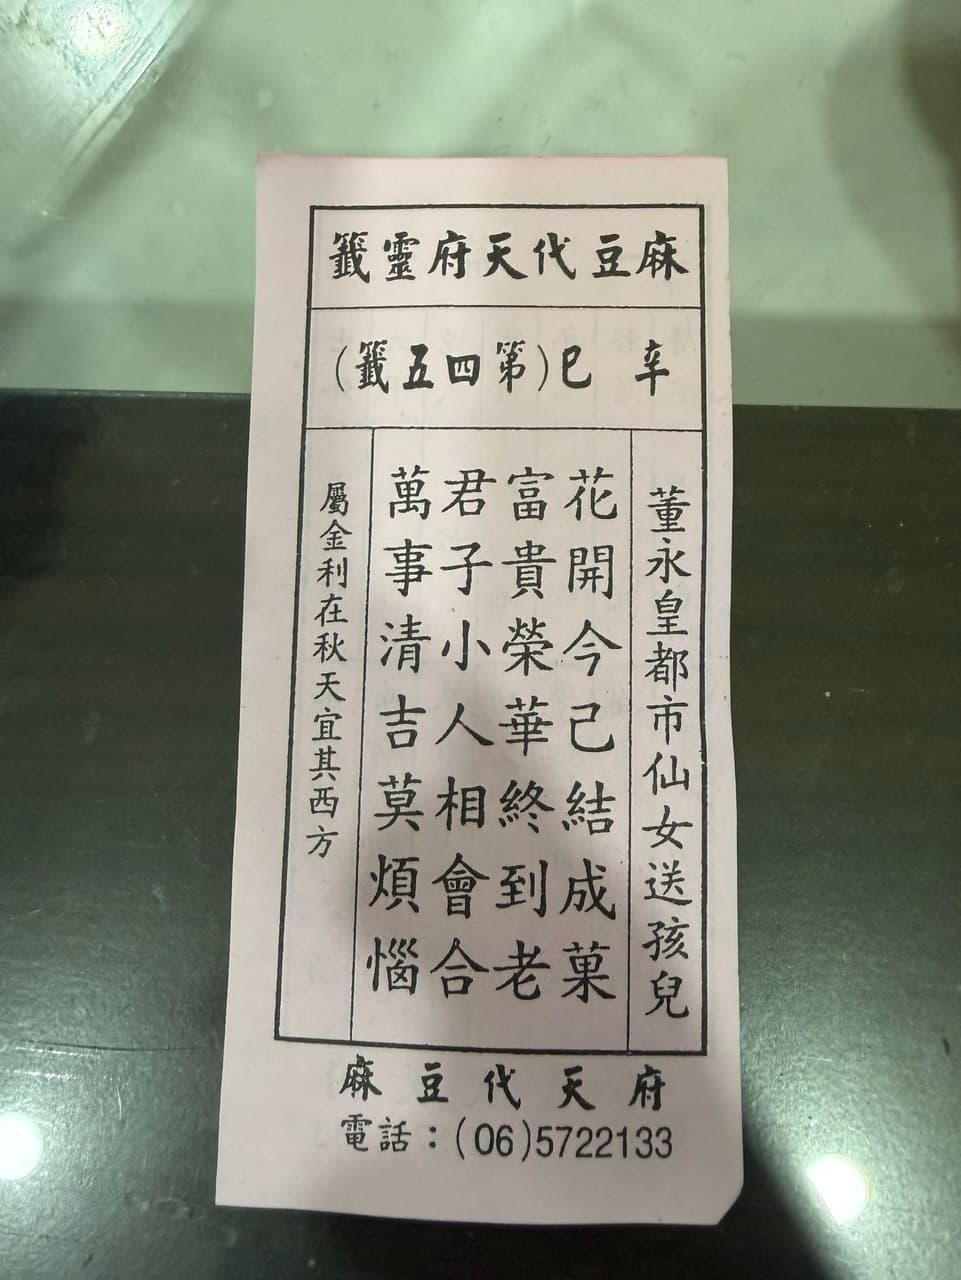 麻豆代天府靈籤
辛巳(第四五籤)
董永皇都市仙女送孩兒
花開今己結成菓
富貴榮華終到老
君子小人相會合
萬事清吉莫煩惱
屬金利在秋天宜其西方
麻豆代天府
電話：(06)5722133